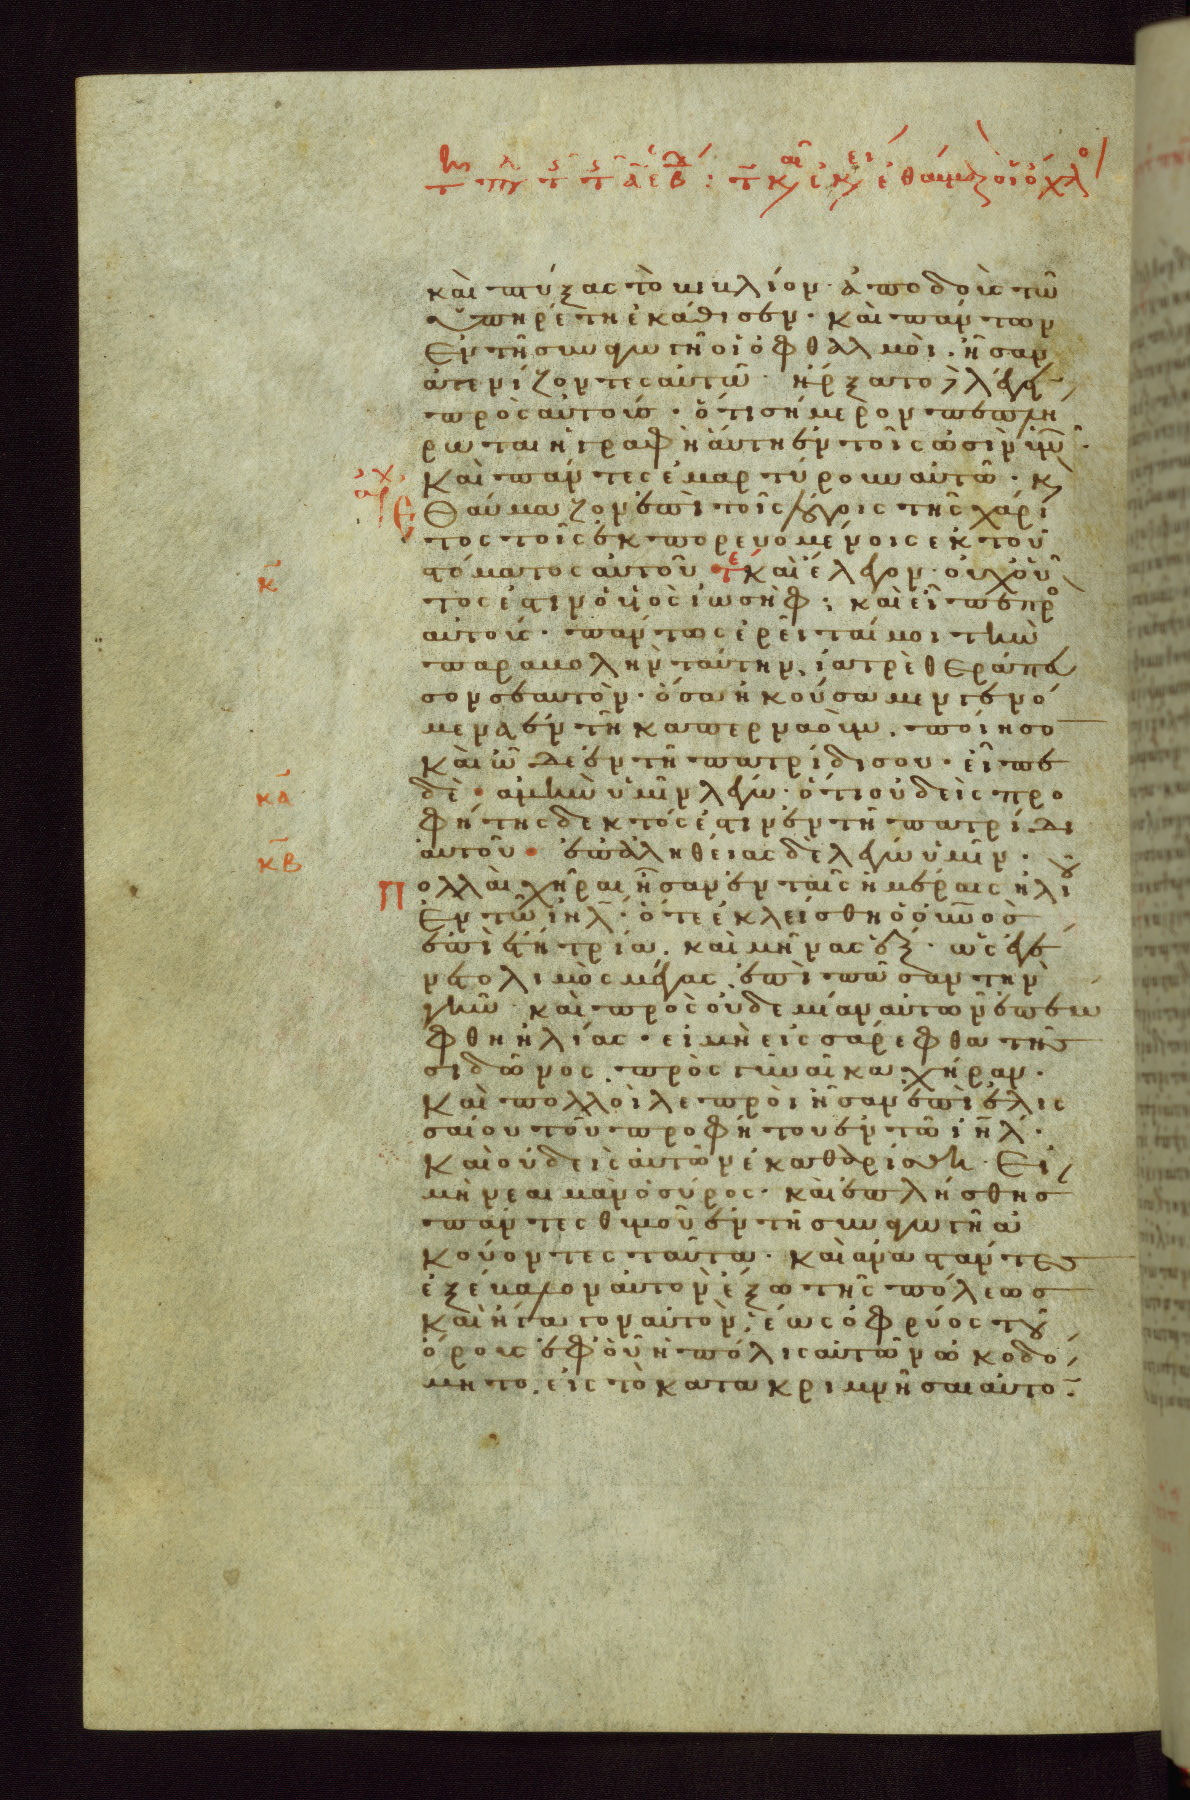 καὶ πτύξας τὸ βιβλίον· ἀποδοὺς τῶ
ὑπηρέτη ἐκάθισεν· καὶ πάντων
ἐν τῆ συναγωγῆ οἱ ὀφθαλμοὶ· ἦσαν
ἀτενίζοντες αὐτῶ· ἤρξατο λέγειν
πρὸς αὐτοὺς· ὅτι σήμερον πεπλή
ρωται ἡ γραφὴ αὕτη ἐν τοῖς ὠσὶν ὑμῶν·
Καὶ πάντες ἐμαρτύρουν αὐτῶ· κ
ἐθαύμαζον ἐπὶ τοῖς λόγοις τῆς χάρι
τος τοῖς ἐκπορευομένοις ἐκ τοῦ
στόματος αὐτοῦ καὶ ἔλεγον· οὐχ οὗ
τος ἐστιν ὁ υἱὸς ἰωσὴφ; καὶ εἶπε πρ
αὐτούς· πάντως ἐρεῖταί μοι τὴν
παραβολὴν ταύτην, ἰατρὲ θεράπευ
σον σεαυτὸν· ὅσα ἠκούσαμεν γενό
μενα ἐν τῆ καπερναοὺμ, ποίησο
καὶ ὧδε ἐν τῆ πατρίδι σου· εἶπε
δὲ· ἀμὴν ὑμῖν λέγω· ὅτι οὐδεὶς προ
φήτης δεκτός ἐστιν ἐν τῆ πατρίδι
αὐτοῦ· ἐπ ἀληθείας δὲ λέγω ὑμῖν·
κ̄
κ̄α
κ̄β
Πολλαὶ χῆραι ἦσαν ἐν ταῖς ἡμέραις ἠλιοῦ
ἐν τῶ ιηλ· ὅτε ἐκλείσθη ὁ οὐνος
ἐπὶ ἔτη τρία, καὶ μῆνας ἓξ· ὡς ἐγέ
νετο λιμὸς μέγας ἐπὶ πᾶσαν τὴν
γῆν· καὶ πρὸς οὐδεμίαν αὐτῶν ἐπέμ
φθη ἠλίας· εἰ μὴ εἰς σάρεφθα τῆς
σιδῶνος, πρὸς γυναῖκα χήραν·
Καὶ πολλοὶ λεπροὶ ἦσαν ἐπὶ ἐλισ
σαίου τοῦ προφήτου ἐν τῶ ιηλ·
Καὶ οὐδεὶς αὐτῶν ἐκαθαρίσθη· Εἰ
μὴ νεαιμὰν ὁ σύρος· καὶ ἐπλήσθησ
πάντες θυμοῦ ἐν τῆ συναγωγῆ ἀ
κούοντες ταῦτα· Καὶ ἀναστάντες
ἐξέβαλον αὐτὸν ἔξω τῆς πόλεως
καὶ ἤγαγον αὐτὸν, ἕως ὀφρύος τοῦ
ὄρους ἐφ οὗ ἡ πόλις αὐτῶν ὠκοδό
μητο, εἰς τὸ κατακριμνῆσαι αὐτὸ